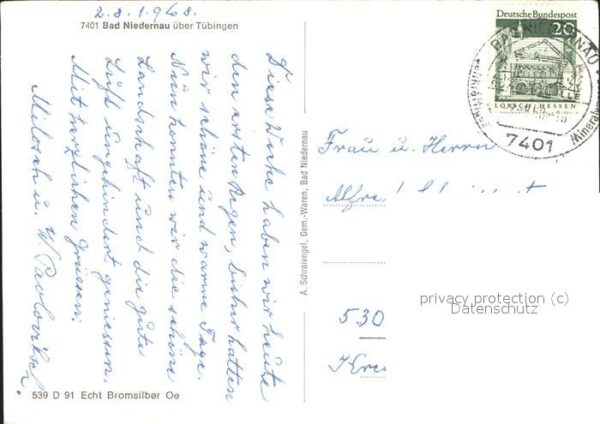 2.8.1968.
7401 Bad Niedernau über Tübingen
Diese Woche haben wir heute
den ersten Regen, bisher hatten
wir schöne und warme Tage.
Nun konnten wir die schöne
Landschaft und die gute
Luft ungehindert geniessen.
Mit herzlichen Grüssen:
u. W.
539 D 91 Echt Bromsilber Oe
A. Schraivogel, Gem.-Waren, Bad Niedernau
Deutsche Bundespost
20
LORSCH / HESSEN
BAD NIEDERNAU
7401
Frau u. Herrn
Alfre
530
Kre
privacy protection (c)
Datenschutz